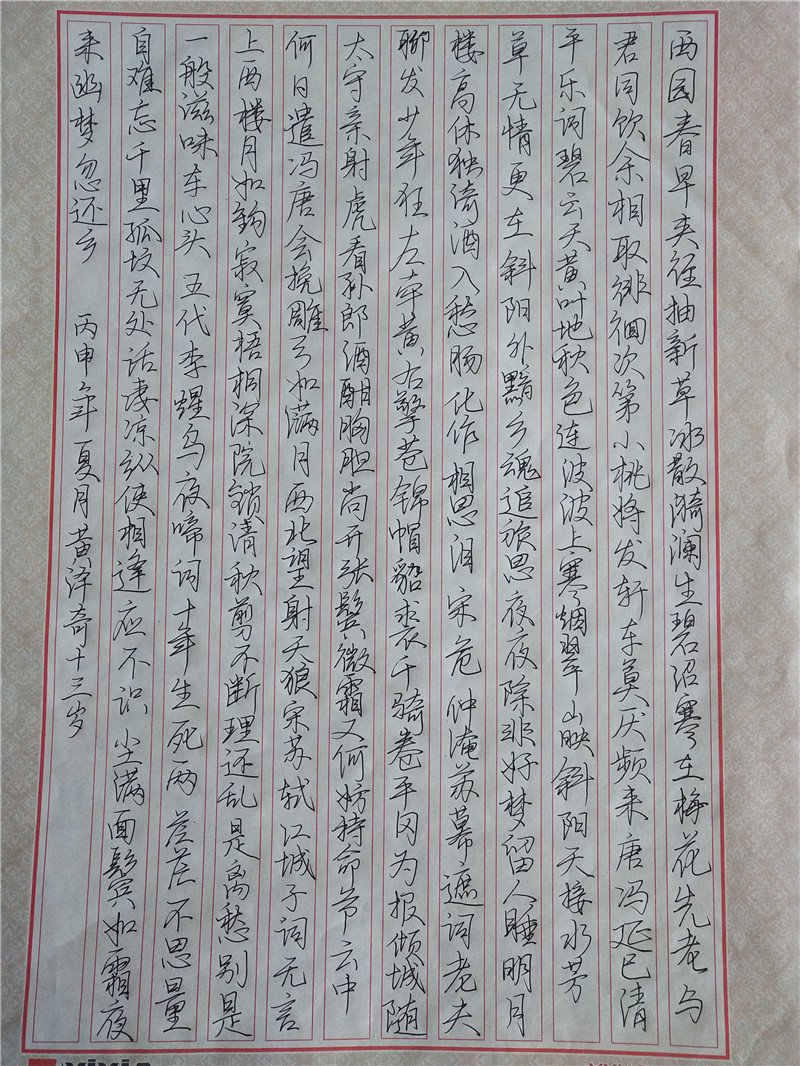 西园春早夹径抽新草冰散漪澜生碧沼寒在梅花先老与
君同饮金相取徘徊次第小桃将发轩车莫厌频来唐冯延巳清
平乐词碧云天黄叶地秋色连波波上寒烟翠山映斜阳天接水芳
草无情更在斜阳外黯乡魂追旅思夜夜除非好梦留人睡明月
楼高休独倚酒入愁肠化作相思泪宋范仲淹苏幕遮词老夫
聊发少年狂左牵黄右擎苍锦帽貂裘千骑卷平冈为报倾城随
太守亲射虎看孙郎酒酣胸胆尚开张鬓微霜又何妨持命节云中
何日遣冯唐会挽雕弓如满月西北望射天狼宋苏轼江城子词无言
上西楼月如钩寂寞梧桐深院锁清秋剪不断理还乱是离愁别是
一般滋味在心头五代李煜乌夜啼词十年生死两茫茫不思量
自难忘千里孤坟无处话凄凉纵使相逢应不识尘满面鬓如霜夜
来幽梦忽还乡 丙申年夏月黄泽奇十三岁